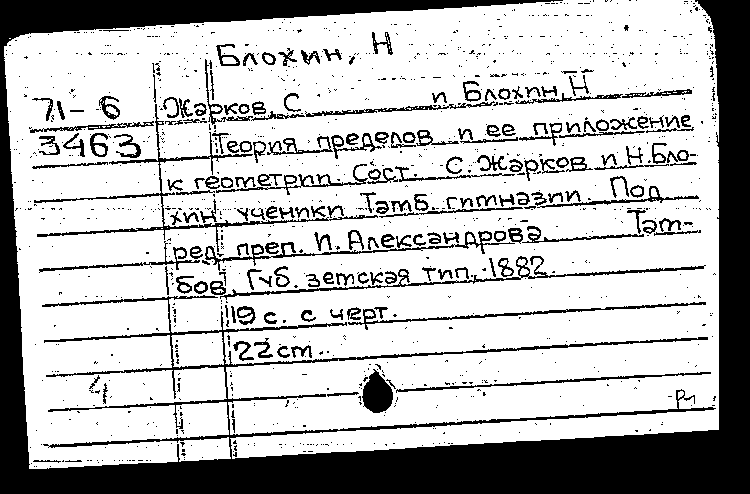 Блохин, Н
71-6 Жарков, С и Блохин, Н
3463 Теория пределов и ее приложение
к геометрии. Сост. С. Жарков и Н. Бло-
хин, ученики Тамб. гимназии. Под
ред. преп. И. Александрова. Там-
бов, Губ. земская тип., 1882.
19 с. с черт.
22 cm.
4